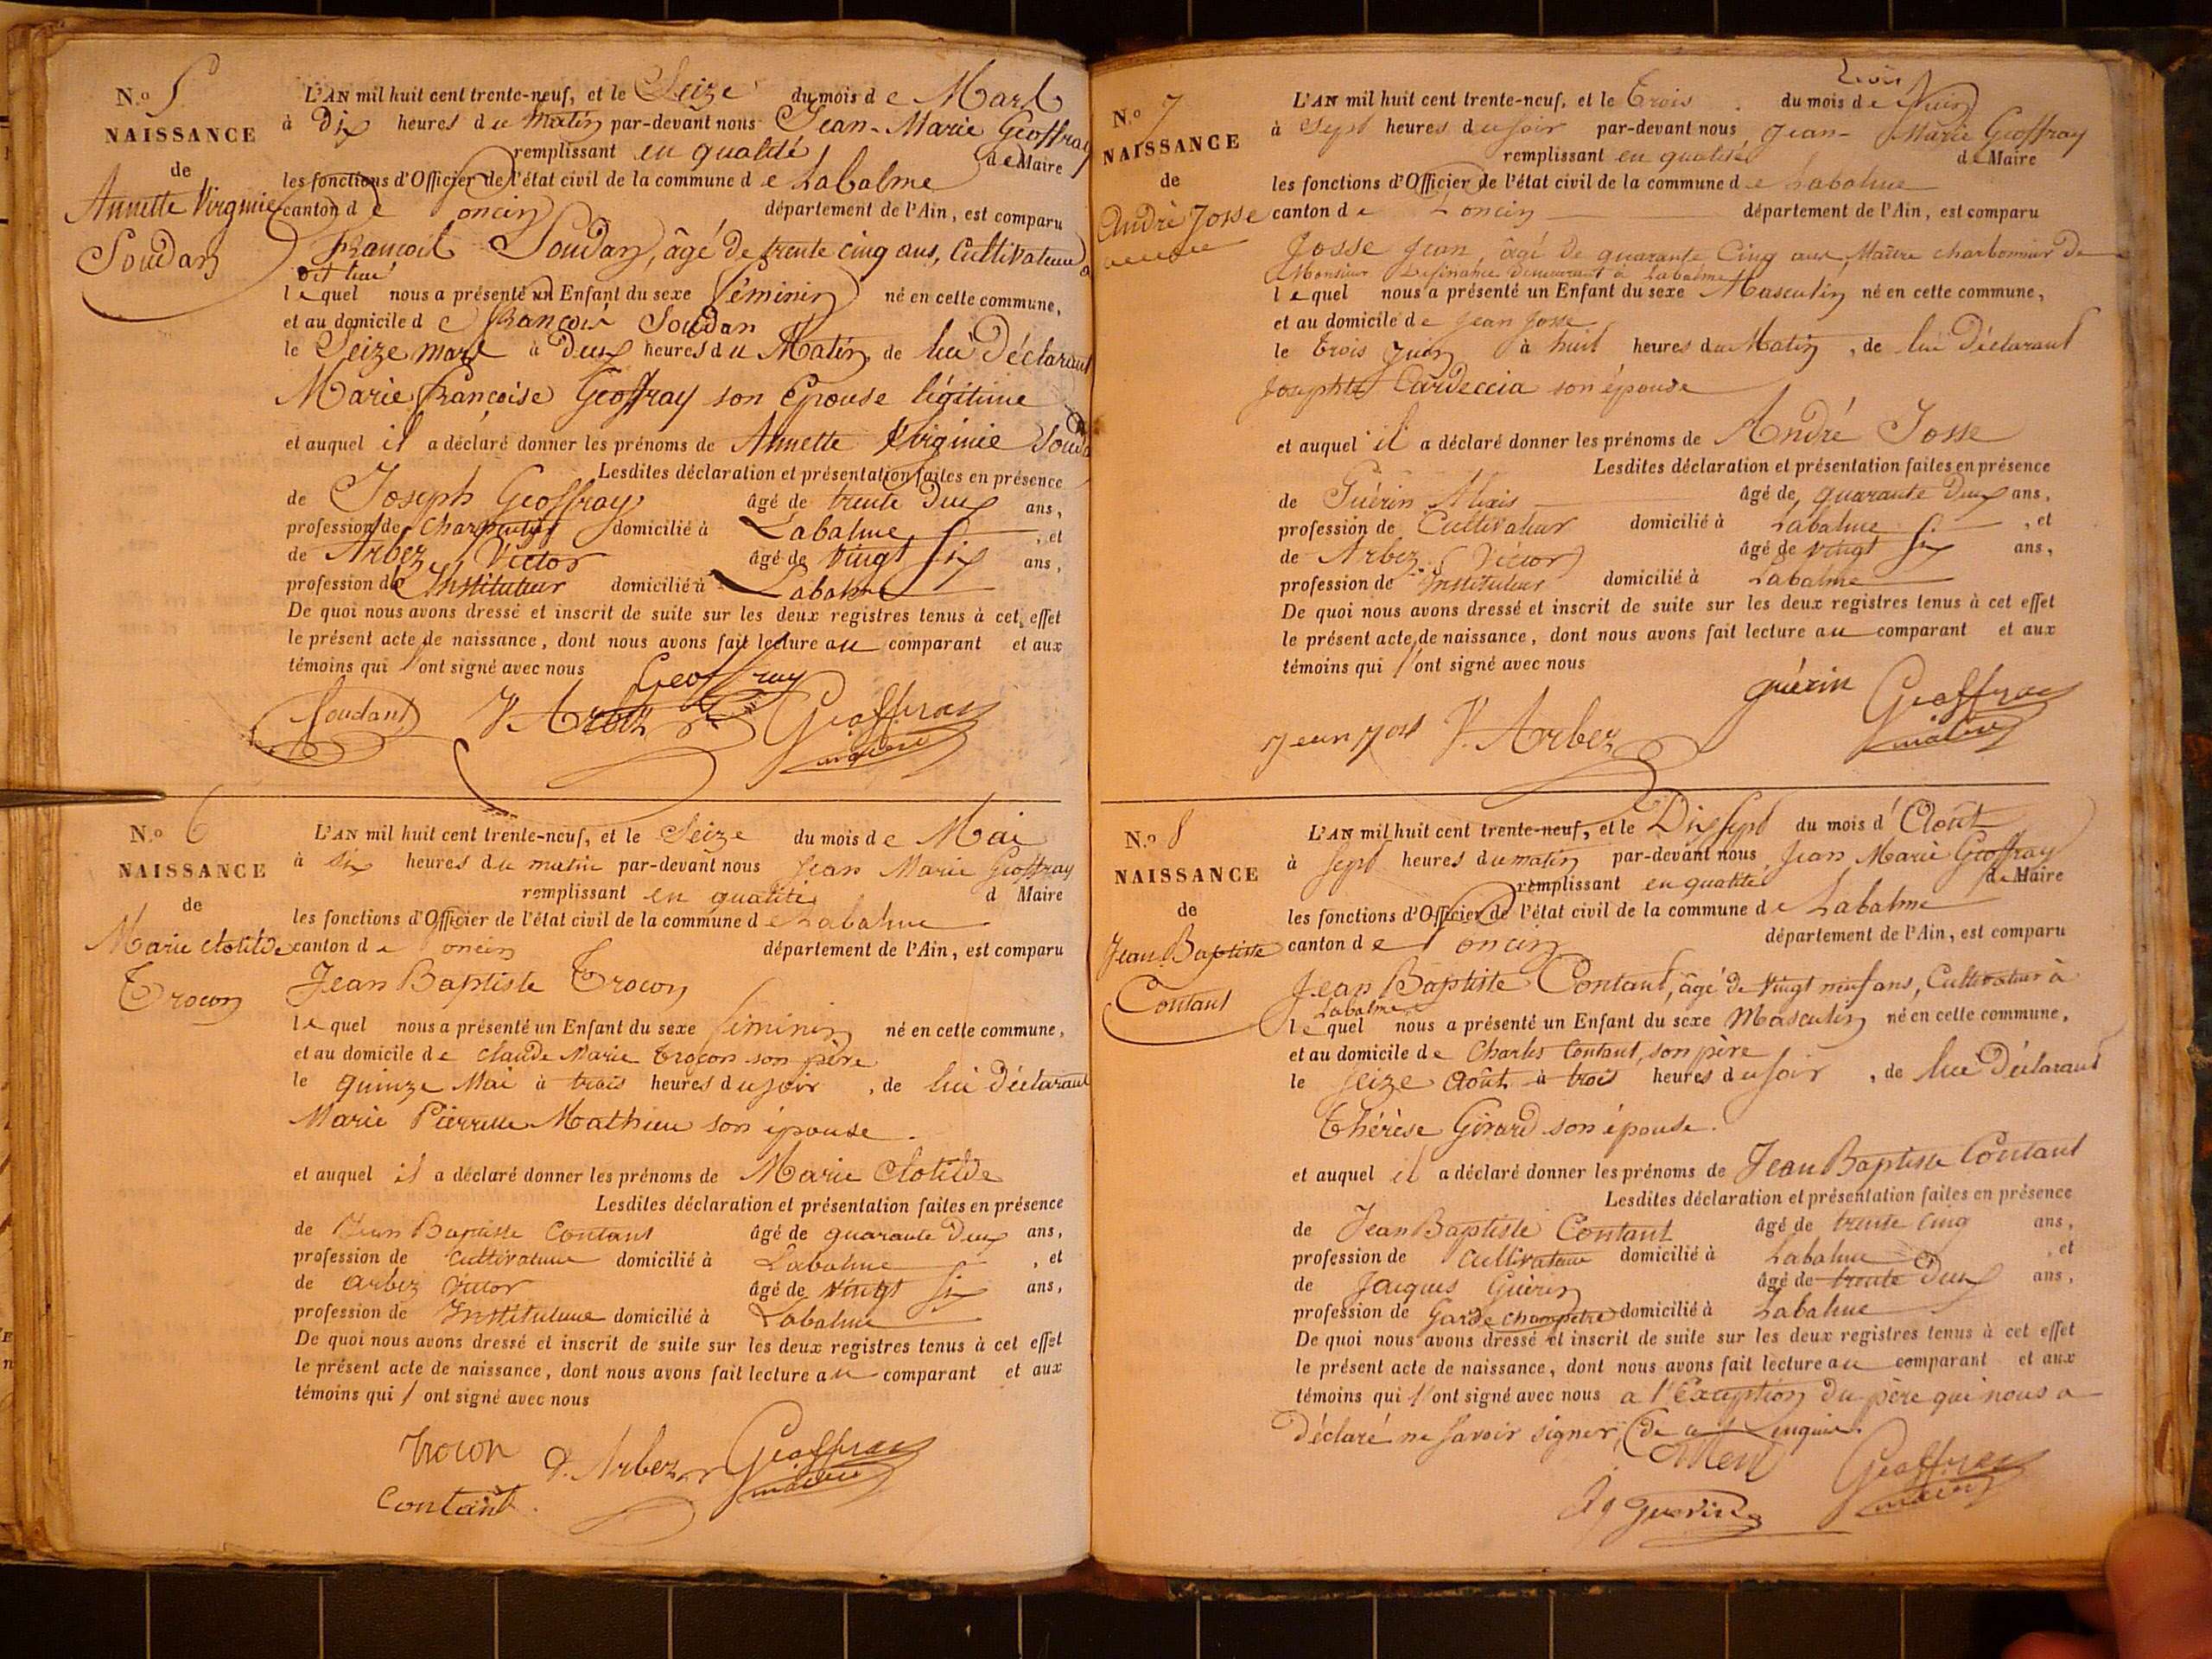 N.o 5
NAISSANCE
de
Annette Virginie
Soudan
L'AN mil huit cent trente-neuf, et le Seize du mois de Mars
à Dix heures du matin par-devant nous Jean-Marie Geoffray
remplissant en qualité de Maire
les fonctions d'Officier de l'état civil de la commune de Labalme
canton de Poncin département de l'Ain, est comparu
François Soudan, âgé de trente cinq ans, Cultivateur a
dit lieu
lequel nous a présenté un Enfant du sexe féminin né en cette commune,
et au domicile de François Soudan
le Seize mars à Deux heures du Matin, de lui Déclarant
Marie françoise Geoffray son Epouse légitime
et auquel il a déclaré donner les prénoms de Annette Virginie Souda
Lesdites déclaration et présentation faites en présence
de Joseph Geoffray âgé de trente Deux ans,
profession de charpentier domicilié à Labalme, et
de Arbez Victor âgé de vingt Six ans,
profession de Instituteur domicilié à Labalme
De quoi nous avons dressé et inscrit de suite sur les deux registres tenus à cet effet
le présent acte de naissance, dont nous avons fait lecture au comparant et aux
témoins qui l'ont signé avec nous
Geoffray
Soudant V. Arbez Geoffray
maire
N.o 6
NAISSANCE
de
Marie Clotilde
Trocon
L'AN mil huit cent trente-neuf, et le Seize du mois de Mai
à Six heures du matin par-devant nous Jean Marie Geoffray
remplissant en qualité d Maire
les fonctions d'Officier de l'état civil de la commune de Labalme
canton de Poncin département de l'Ain, est comparu
Jean Baptiste Trocon
lequel nous a présenté un Enfant du sexe féminin né en cette commune,
et au domicile de Claude Marie Trocon son père
le quinze Mai à trois heures du soir, de lui Déclarant
Marie Pierrette Mathieu son épouse.
et auquel il a déclaré donner les prénoms de Marie Clotilde
Lesdites déclaration et présentation faites en présence
de Jean Baptiste Contant âgé de quarante Deux ans,
profession de Cultivateur domicilié à Labalme, et
de Arbez Victor âgé de vingt Six ans,
profession de Instituteur domicilié à Labalme
De quoi nous avons dressé et inscrit de suite sur les deux registres tenus à cet effet
le présent acte de naissance, dont nous avons fait lecture au comparant et aux
témoins qui l'ont signé avec nous
Trocon V. Arbez Geoffray
maire
Contant.
N.o 7
NAISSANCE
de
André Josse
L'AN mil huit cent trente-neuf, et le Trois du mois de Juin
à Sept heures du soir par-devant nous Jean-Marie Geoffray
remplissant en qualité de Maire
les fonctions d'Officier de l'état civil de la commune de Labalme
canton de Poncin département de l'Ain, est comparu
Josse Jean, âgé de quarante Cinq ans Maître charbonnier de
Monsieur Demeurant à Labalme
lequel nous a présenté un Enfant du sexe Masculin né en cette commune,
et au domicile de Jean Josse
le trois Juin à huit heures du Matin, de lui Déclarant
Cardeccia son épouse
et auquel il a déclaré donner les prénoms de André Josse
Lesdites déclaration et présentation faites en présence
de Guérin Alexis âgé de quarante Deux ans,
profession de Cultivateur domicilié à Labalme, et
de Arbez (Victor) âgé de vingt Six ans,
profession de Instituteur domicilié à Labalme
De quoi nous avons dressé et inscrit de suite sur les deux registres tenus à cet effet
le présent acte de naissance, dont nous avons fait lecture au comparant et aux
témoins qui l'ont signé avec nous
guérin Geoffray
maire
Jean V. Arbez
N.o 8
NAISSANCE
de
Jean Baptiste
Contant
L'AN mil huit cent trente-neuf, et le Dix Sept du mois d'Août
à Sept heures du matin par-devant nous Jean Marie Geoffray
remplissant en qualité de Maire
les fonctions d'Officier de l'état civil de la commune de Labalme
canton de Poncin département de l'Ain, est comparu
Jean Baptiste Contant, âgé de Vingt neuf ans, Cultivateur à
Labalme
lequel nous a présenté un Enfant du sexe Masculin né en cette commune,
et au domicile de Charles Contant, son père
le Seize Août à trois heures du soir, de lui Déclarant
Thérèse Girard son épouse.
et auquel il a déclaré donner les prénoms de Jean Baptiste Contant
Lesdites déclaration et présentation faites en présence
de Jean Baptiste Contant âgé de trente Cinq ans,
profession de Cultivateur domicilié à Labalme, et
de Jacques Guérin âgé de trente Deux ans,
profession de Garde champêtre domicilié à Labalme
De quoi nous avons dressé et inscrit de suite sur les deux registres tenus à cet effet
le présent acte de naissance, dont nous avons fait lecture au comparant et aux
témoins qui l'ont signé avec nous a l'Exception du père qui nous a
Déclaré ne savoir signer, de ce enquis.
Geoffray
maire
Guerin